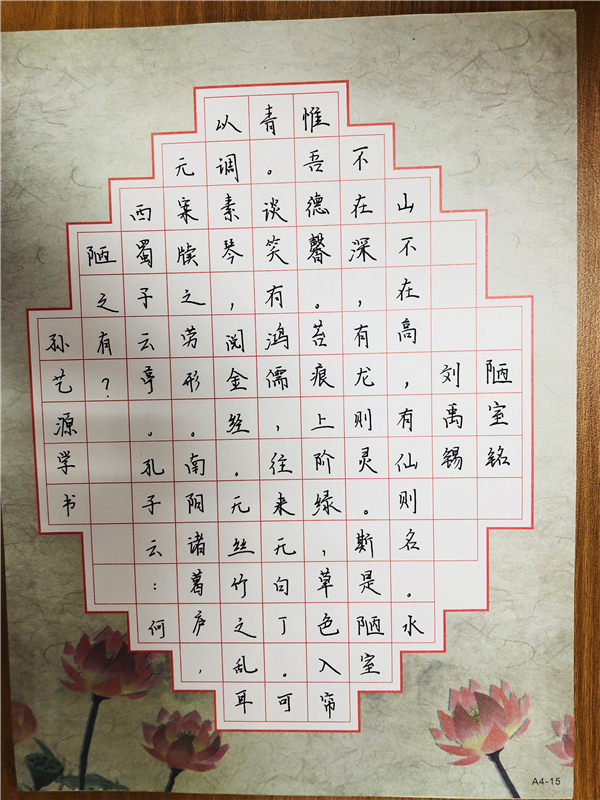 陋室铭
刘禹锡
山不在高，有仙则名。水
不在深，有龙则灵。斯是陋室
惟吾德馨。苔痕上阶绿，草色入帘
青。谈笑有鸿儒，往来无句丁。可
以调素琴，阅金经。无丝竹之乱耳
无案牍之劳形。南阳诸葛庐，
西蜀子云亭。孔子云：何
陋之有？
孙艺源学书
A4-15